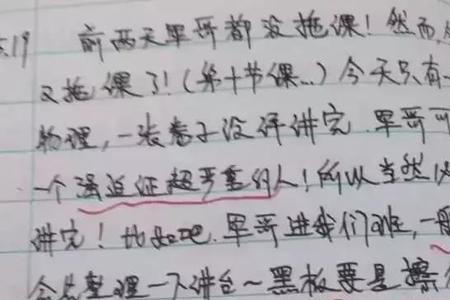 5.19 前两天军哥都没拖课！然而,
又拖课了！(第十节课...)今天只有一
物理,一张卷子没评讲完 军哥可
一个强迫症超严重的人！所以当然
讲完！比如吧.军哥进我们班,一般
会先整理一下讲台~黑板要是擦